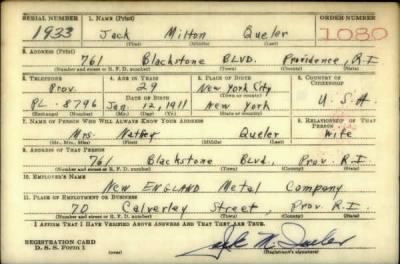 SERIAL NUMBER 1. NAME (Print) ORDER NUMBER
1933 Jack Milton Queler 1080
(First) (Middle) (Last)
2. ADDRESS (Print)
761 Blackstone BLVD. Providence, R.I
(Number and street or R. F. D. number) (Town) (County) (State)
3. TELEPHONE 4. AGE IN YEARS 5. PLACE OF BIRTH 6. COUNTRY OF CITIZENSHIP
Prov. 29 New York City
DATE OF BIRTH
PL. 8796 Jan. 12, 1911 New York U.S.A.
(Exchange) (Number) (Mo.) (Day) (Yr.) (State or country)
7. NAME OF PERSON WHO WILL ALWAYS KNOW YOUR ADDRESS 8. RELATIONSHIP OF THAT PERSON
Mrs. Queler Wife
(Mr., Mrs., Miss) (First) (Middle) (Last)
9. ADDRESS OF THAT PERSON
761 Blackstone Blvd., Prov. R.I.
(Number and street or R. F. D. number) (Town) (County) (State)
10. EMPLOYER'S NAME
NEW ENGLAND Metal Company
11. PLACE OF EMPLOYMENT OR BUSINESS
70 Calverley Street, Prov. R.I.
(Number and street or R. F. D. number) (Town) (County) (State)
I AFFIRM THAT I HAVE VERIFIED ABOVE ANSWERS AND THAT THEY ARE TRUE.
REGISTRATION CARD
D. S. S. Form 1 (Registrant's signature)